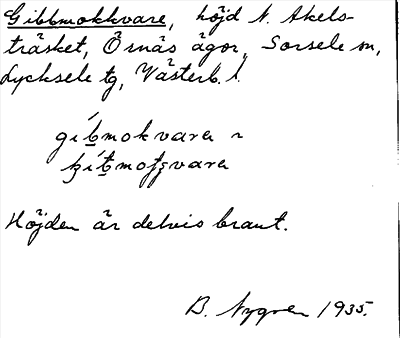 Gibbmokkvare, höjd N. Akels-
träsket, Örnäs ägor, Sorsele sn,
Lycksele tg, Västerb. l.
gíb̲mokvarɛ ~
Höjden är delvis brant.
B. Nygren 1935.